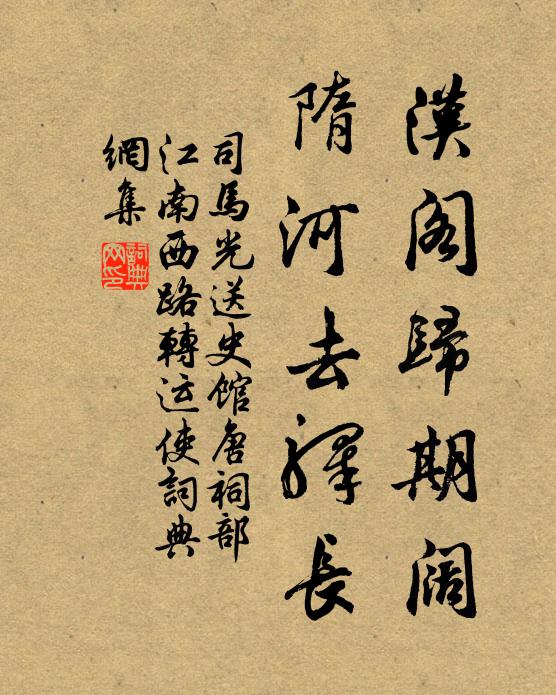 漢阁歸期阔
隋河去驛長
司馬光送史馆唐祠部
江南西路轉运使詞典
網集
詞典
网印